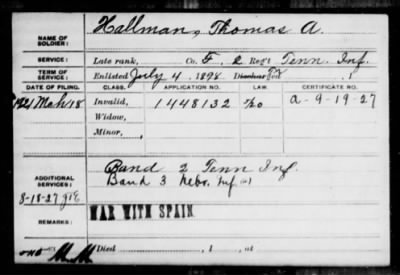 NAME OF SOLDIER: Hallman, Thomas A.
SERVICE: Late rank, Co. F, 2 Reg't Tenn. Inf.
TERM OF SERVICE: Enlisted July 4, 1898, Discharged , 1
DATE OF FILING. CLASS. APPLICATION NO. LAW. CERTIFICATE NO.
1921 Mch 18 Invalid, 1448132 a-9-19-27
Widow,
Minor,
ADDITIONAL SERVICES: Band 2 Tenn Inf.
Band 3 Nebr. Inf
8-18-27
WAR WITH SPAIN.
REMARKS:
Died , 1 , at